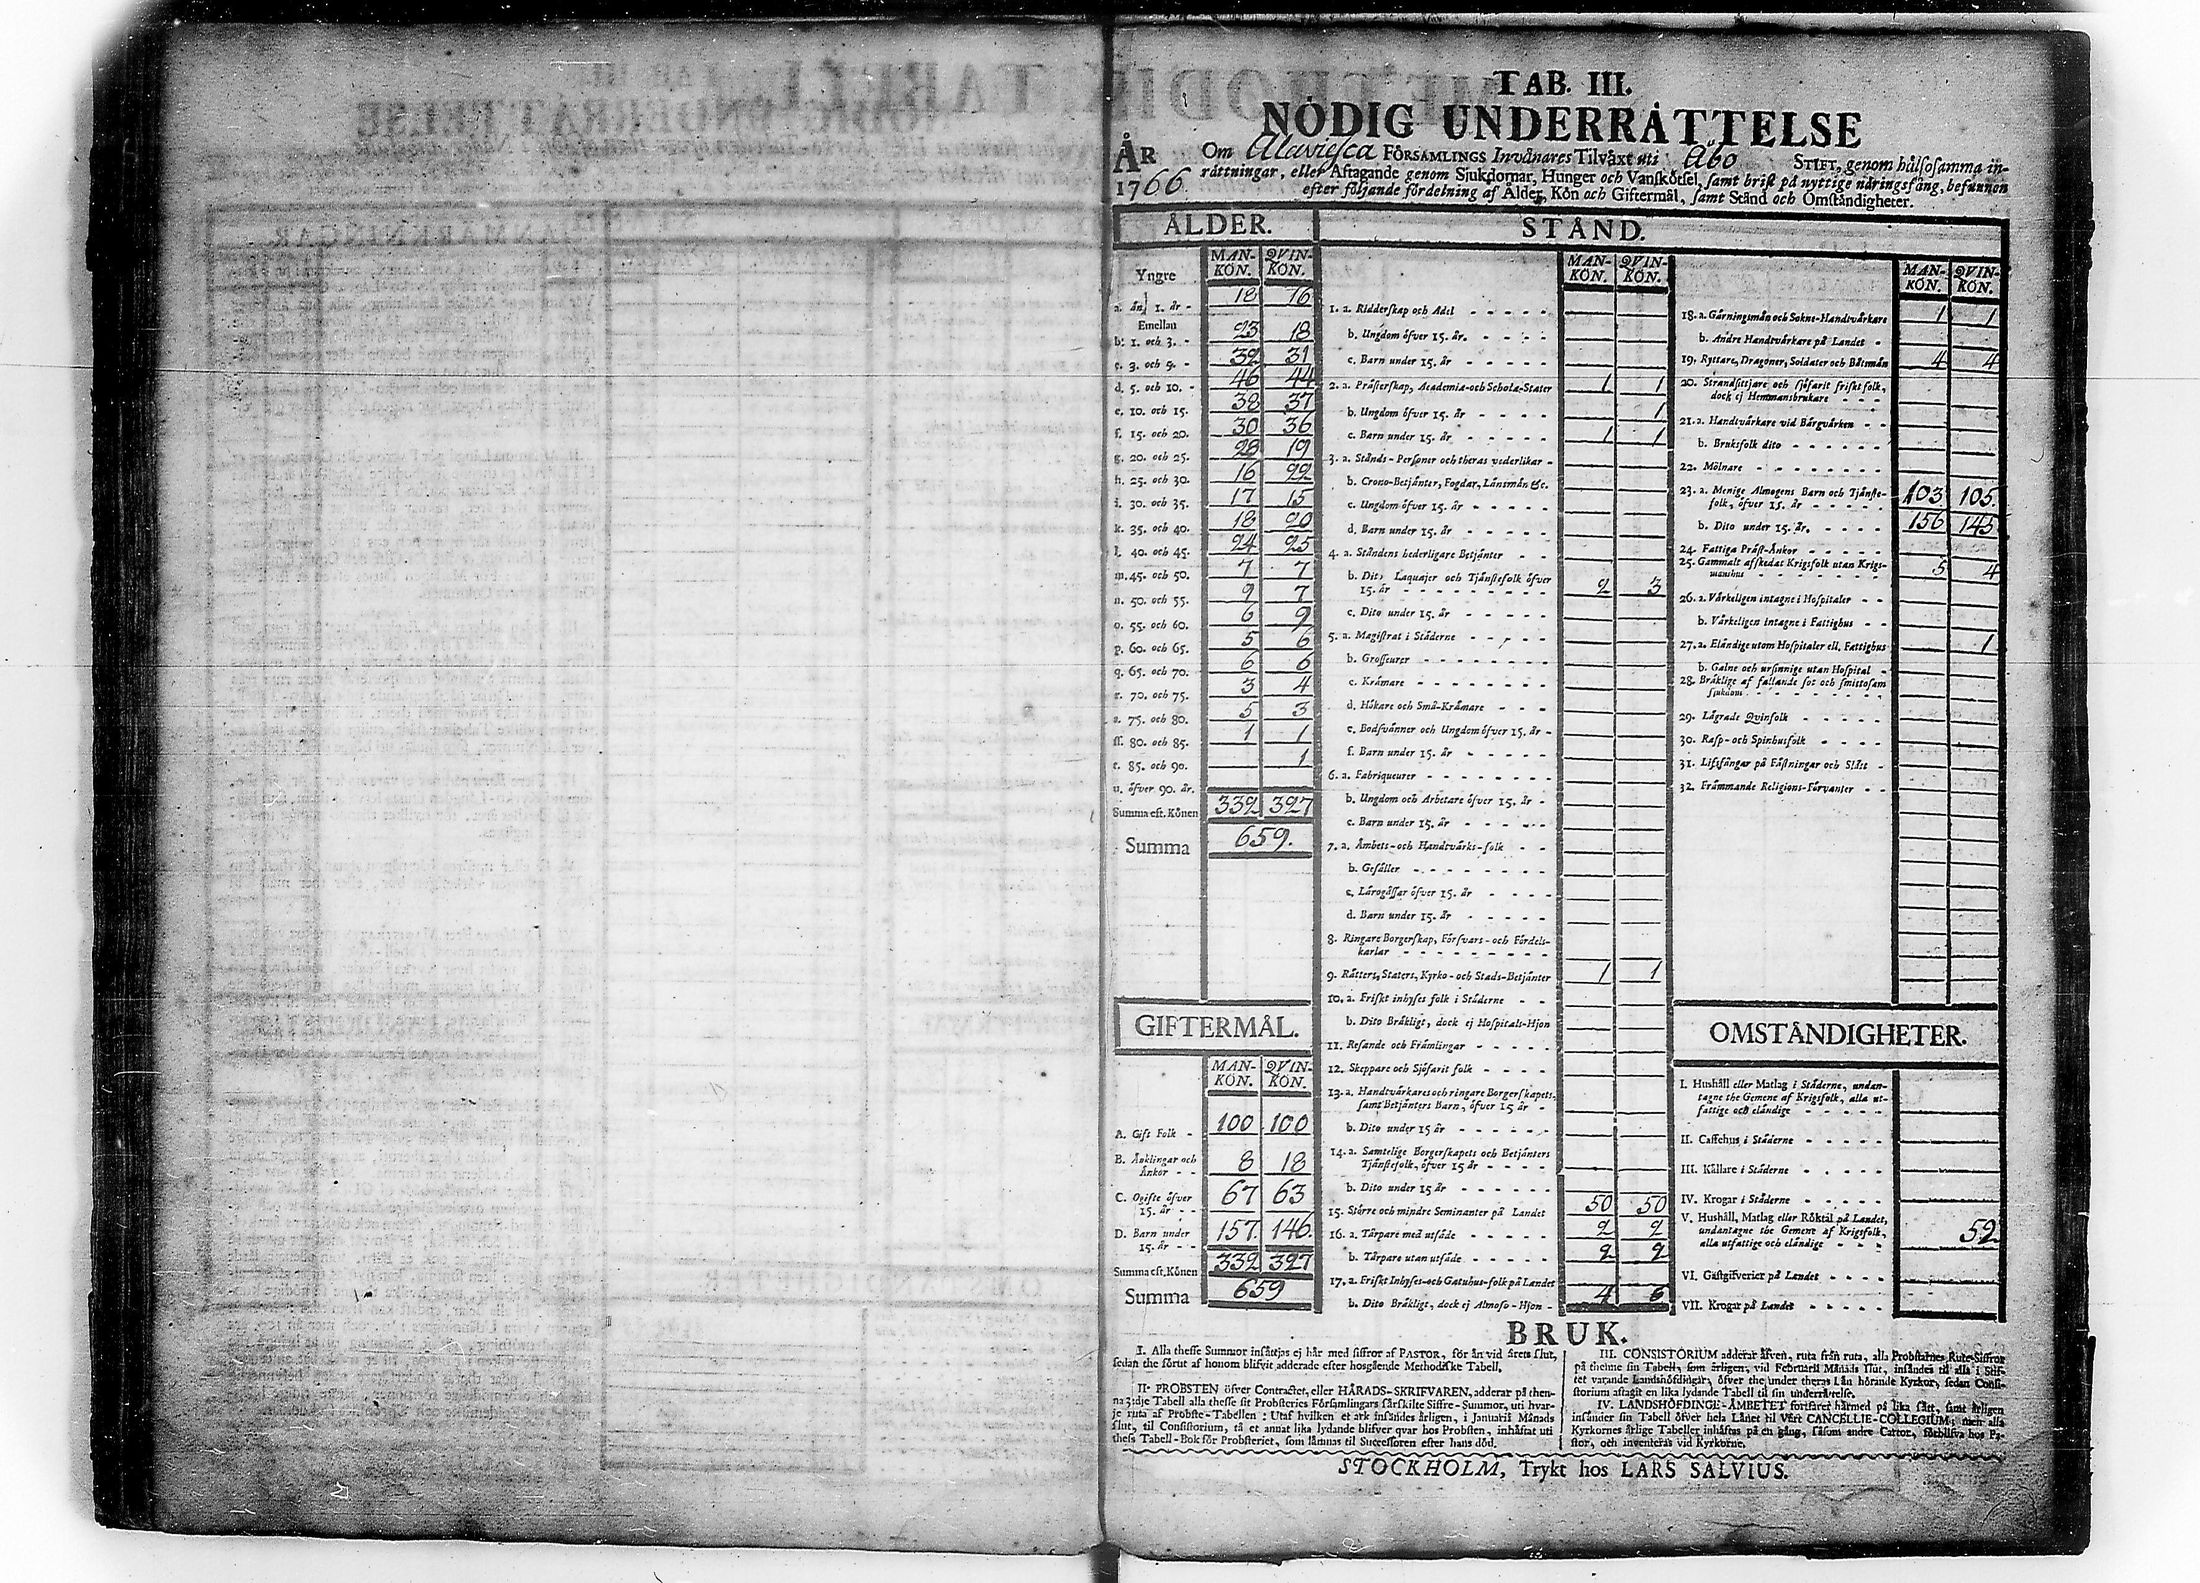 TAB. III.
NÖDIG UNDERRÄTTELSE
ÅR 1766
Om Alavieska FÖRSAMLINGS Invånares Tilväxt uti Åbo STIFT, genom hälsosamma in-
rättningar, eller Aftagande genom Sjukdomar, Hunger och Vanskötsel, samt brist på nyttige näringsfång, befunnen
efter följande fördelning af Ålder, Kön och Giftermål, samt Stånd och Omständigheter.
ÅLDER.
MAN-KÖN. QVIN-KÖN.
Yngre
a. än 1. år - 18 16
Emellan
b. 1. och 3. - 23 18
c. 3. och 5. - 32 31
d. 5. och 10. - 46 44
e. 10. och 15. 38 37
f. 15. och 20. 30 36
g. 20. och 25. 28 19
h. 25. och 30. 16 22
i. 30. och 35. 17 15
k. 35. och 40. 18 20
l. 40. och 45. 24 25
m. 45. och 50. 7 7
n. 50. och 55. 9 7
o. 55. och 60. 6 9
p. 60. och 65. 5 6
q. 65. och 70. 6 6
r. 70. och 75. 3 4
s. 75. och 80. 5 3
ss. 80. och 85. 1 1
t. 85. och 90. 1
u. öfver 90. år.
Summa eft. Könen 332 327
Summa 659.
GIFTERMÅL.
MAN-KÖN. QVIN-KÖN.
A. Gift Folk - 100 100
B. Änklingar och
Änkor - - 8 18
C. Ogifte öfver
15. år - - 67 63
D. Barn under
15. år - - 157. 146.
Summa eft. Könen 332 327
Summa 659
STÅND.
MAN-KÖN. QVIN-KÖN.
1. a. Ridderskap och Adel
b. Ungdom öfver 15. år.
c. Barn under 15. år
2. a. Prästerskap, Academiæ-och Scholæ-Stater 1 1
b. Ungdom öfver 15. år 1
c. Barn under 15. år 1 1
3. a. Stånds-Personer och theras vederlikar -
b. Crono-Betjänter, Fogdar, Länsmän &c.
c. Ungdom öfver 15. år
d. Barn under 15. år
4. a. Ståndens hederligare Betjänter
b. Dito Laquajer och Tjänstefolk öfver
15. år 2 3
c. Dito under 15. år
5. a. Magistrat i Städerne
b. Grosseurer
c. Krämare
d. Hökare och Små-Krämare
e. Bodsvänner och Ungdom öfver 15. år -
f. Barn under 15. år
6. a. Fabriqueurer
b. Ungdom och Arbetare öfver 15. år -
c. Barn under 15. år
7. a. Ämbets-och Handtvärks-folk
b. Gesäller
c. Lärogässar öfver 15. år
d. Barn under 15. år
8. Ringare Borgerskap, Försvars-och Fördels-
karlar
9. Rätters, Staters, Kyrko-och Stads-Betjänter 1 1
10. a. Friskt inhyses folk i Städerne
b. Dito Bräkligt, dock ej Hospitals-Hjon
11. Resande och Främlingar
12. Skeppare och Sjöfarit folk
13. a. Handtvärkares och ringare Borgerskapets,
samt Betjänters Barn, öfver 15 år -
b. Dito under 15 år
14. a. Samtelige Borgerskapets och Betjänters
Tjänstefolk, öfver 15 år
b. Dito under 15 år
15. Större och mindre Hemmanter på Landet 50 50
16. a. Torpare med utsäde 2 2
b. Torpare utan utsäde 2 2
17. a. Friskt Inhyses-och Gatuhus-folk på Landet
b. Dito Bräkligt, dock ej Almoso-Hjon - 4 6
MAN-KÖN. QVIN-KÖN.
18. a. Gärningsmän och Sokne-Handtvärkare 1 1
b. Andre Handtvärkare på Landet
19. Ryttare, Dragoner, Soldater och Båtsmän 4 4
20. Strandsittjare och sjöfarit friskt folk,
dock ej Hemmansbrukare
21. a. Handtvärkare vid Bärgvärken
b. Bruksfolk dito
22. Mölnare
23. a. Menige Almogens Barn och Tjänste-
folk, öfver 15. år 103 105.
b. Dito under 15. år. 156 145
24. Fattiga Präst-Änkor
25. Gammalt afskedat Krigsfolk utan Krigs-
manshus 5 4
26. a. Värkeligen intagne i Hospitaler
b. Värkeligen intagne i Fattighus
27. a. Eländige utom Hospitaler ell. Fattighus 1
b. Galne och ursinnige utan Hospital -
28. Bräklige af fallande sot och smittosam
sjukdom
29. Lägrade Qvinfolk
30. Rasp-och Spinhusfolk
31. Lifsfångar på Fästningar och Slått
32. Främmande Religions-Förvanter
OMSTÄNDIGHETER.
I. Hushåll eller Matlag i Städerne, undan-
tagne the Gemene af Krigsfolk, alla ut-
fattige och eländige
II. Caffehus i Städerne
III. Källare i Städerne
IV. Krogar i Städerne
V. Hushåll, Matlag eller Röktal på Landet,
undantagne the Gemene af Krigsfolk,
alla utfattige och eländige 52
VI. Gästgifverier på Landet
VII. Krogar på Landet
BRUK.
I. Alla thesse Summor insättjas ej här med siffror af PASTOR, för än vid årets slut,
sedan the förut af honom blifvit adderade efter hosgående Methodiske Tabell.
II. PROBSTEN öfver Contractet, eller HÄRADS-SKRIFVAREN, adderar på then-
na 3:dje Tabell alla thesse sit Probsteries Församlingars särskilte Siffre-Summor, uti hvar-
je ruta af Probste-Tabellen: Utaf hvilken et ark insändes årligen, i Januarii Månads
slut, til Consistorium, tå et annat lika lydande blifver qvar hos Probsten, inhäftat uti
thess Tabell-Bok för Probsteriet, som lämnas til Successoren efter hans död.
III. CONSISTORIUM adderar äfven, ruta från ruta, alla Probstarnes Rute-Siffror
på thenne sin Tabell, som årligen, vid Februarii Månads slut, insändes til alla i Stif-
tet varande Landshöfdingar, öfver the under theras Län hörande Kyrkor, sedan Consi-
storium aftagit en lika lydande Tabell til sin underrättelse.
IV. LANDSHÖFDINGE-ÄMBETET fortfaret härmed på lika sätt, samt årligen
insänder sin Tabell öfver hela Länet til Vårt CANCELLIE-COLLEGIUM; men alla
Kyrkornes årlige Tabeller inhäftas på en gång, såsom andre Cartor, förblifva hos Pa-
stor, och inventeras vid Kyrkorne.
STOCKHOLM, Trykt hos LARS SALVIUS.